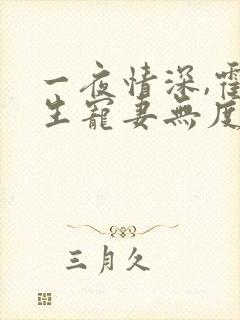 一夜情深,霍
生寵妻無度
三月久